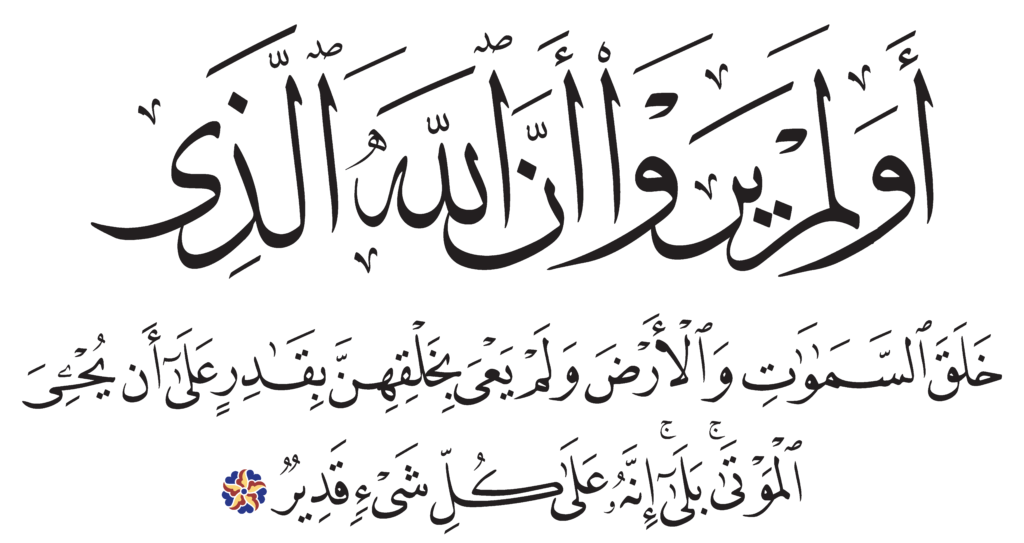 أَوَلَمْ يَرَوْا۟ أَنَّ ٱللَّهَ ٱلَّذِى
خَلَقَ ٱلسَّمَـٰوَٰتِ وَٱلْأَرْضَ وَلَمْ يَعْىَ بِخَلْقِهِنَّ بِقَـٰدِرٍ عَلَىٰٓ أَن يُحْـِۧىَ
ٱلْمَوْتَىٰ ۚ بَلَىٰٓ ۚ إِنَّهُۥ عَلَىٰ كُلِّ شَىْءٍ قَدِيرٌ